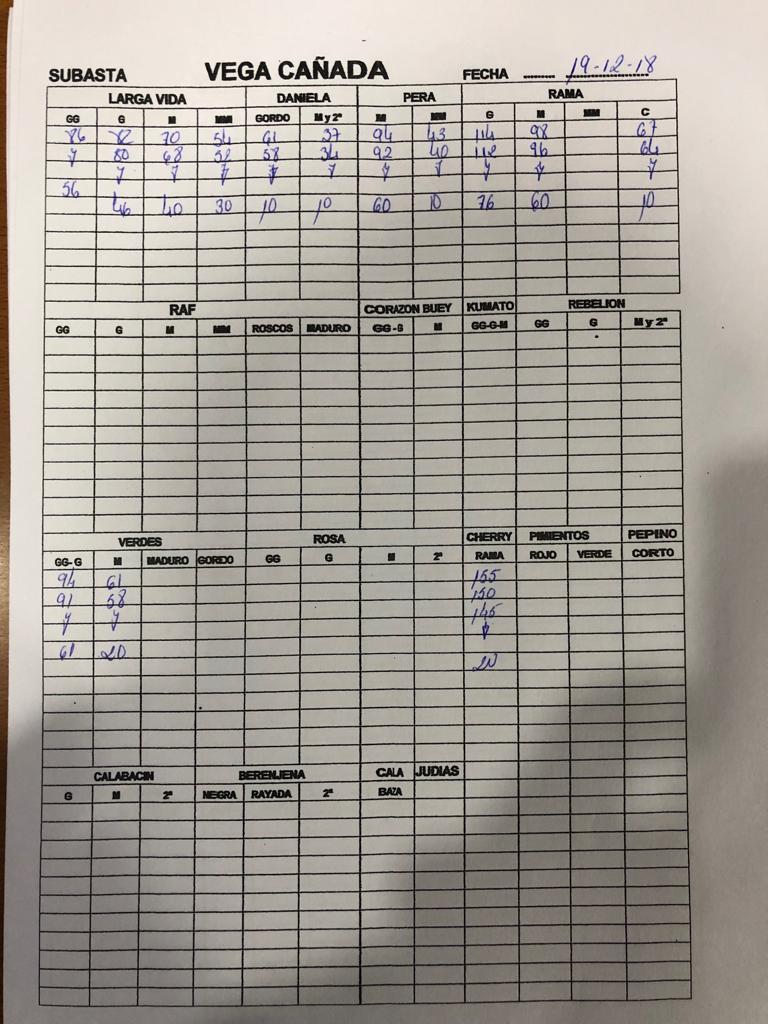 SUBASTA VEGA CAÑADA FECHA 19-12-18
LARGA VIDA DANIELA PERA RAMA
GG G M MM GORDO M y 2ª M MM G M MM C
86 82 70 54 61 37 94 43 114 98 67
80 68 52 58 34 92 40 112 96 64
56
46 40 30 10 10 60 10 76 60 10
RAF CORAZON BUEY KUMATO REBELION
GG G M MM ROSCOS MADURO GG-G M GG-G-M GG G M y 2ª
VERDES ROSA CHERRY PIMIENTOS PEPINO
GG-G M MADURO GORDO GG G M 2ª RAMA ROJO VERDE CORTO
94 61 155
91 58 150
145
61 20 20
CALABACIN BERENJENA CALA JUDIAS
G M 2ª NEGRA RAYADA 2ª BAZA